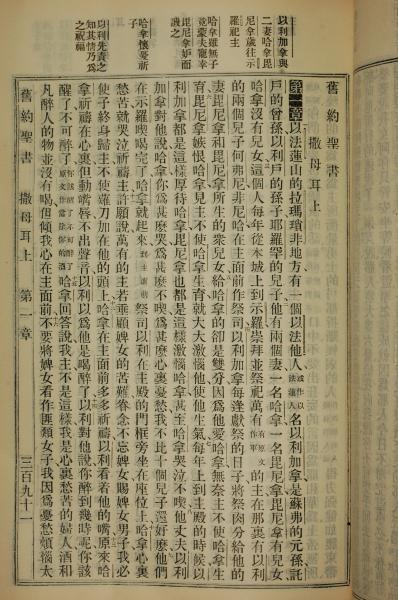 以利加拿與
二妻哈拿毘
尼拿歲往示
羅祀主
哈拿雖無子
竟蒙夫寵幸
毘尼拿妒而
譏之
哈拿懷憂祈
子
以利先責之
知其情乃爲
之祝福
舊約聖書 撒母耳上
第一章以法蓮山的拉瑪瑣非地方有一個以法他人或作以法蓮人名以利加拿是蘇弗的元孫託
戶的曾孫以利戶的孫子耶羅罕的兒子他有兩個妻一名哈拿一名毘尼拿毘尼拿有兒女
哈拿沒有兒女這個人每年從本城上到示羅崇拜並祭祀萬有有原文作軍的主在那裏有以利
的兩個兒子何弗尼非尼哈在主面前作祭司以利加拿每逢獻祭的日子將祭肉分給他的
妻毘尼拿和毘尼拿所生的衆兒女給哈拿的卻是雙分因爲他愛哈拿無奈主不使哈拿生
育毘尼拿嫉恨哈拿見主不使哈拿生育就大大激惱他使他生氣每年上到主殿的時候以
利加拿都是這樣厚待哈拿毘尼拿也都是這樣激惱哈拿甚至哈拿哭泣不喫他丈夫以利
加拿對他說哈拿你爲甚麼哭爲甚麼不喫爲甚麼心裏憂愁我不比十個兒子還好麼他們
在示羅喫喝完了哈拿就起來到主面前祭司以利在主殿的門框旁坐在座位上哈拿心裏
愁苦就哭泣祈禱主許願說萬有的主若垂顧婢女的苦難眷念不忘婢女賜婢女男子我必
使子終身歸主不使薙刀加在他的頭上哈拿在主面前多多祈禱以利看着他的嘴原來哈
拿祈禱在心裏但動嘴唇不出聲音以利以爲他是喝醉了以利對他說你醉到幾時呢你該
醒了不可醉了哈拿回答說我主不是這樣我是心裏愁苦的婦人酒和
凡醉人的物並沒有喝但傾我心在主面前不要將婢女看作匪類女子我因爲憂愁煩惱太
舊約聖書 撒母耳上 第一章 三百九十一